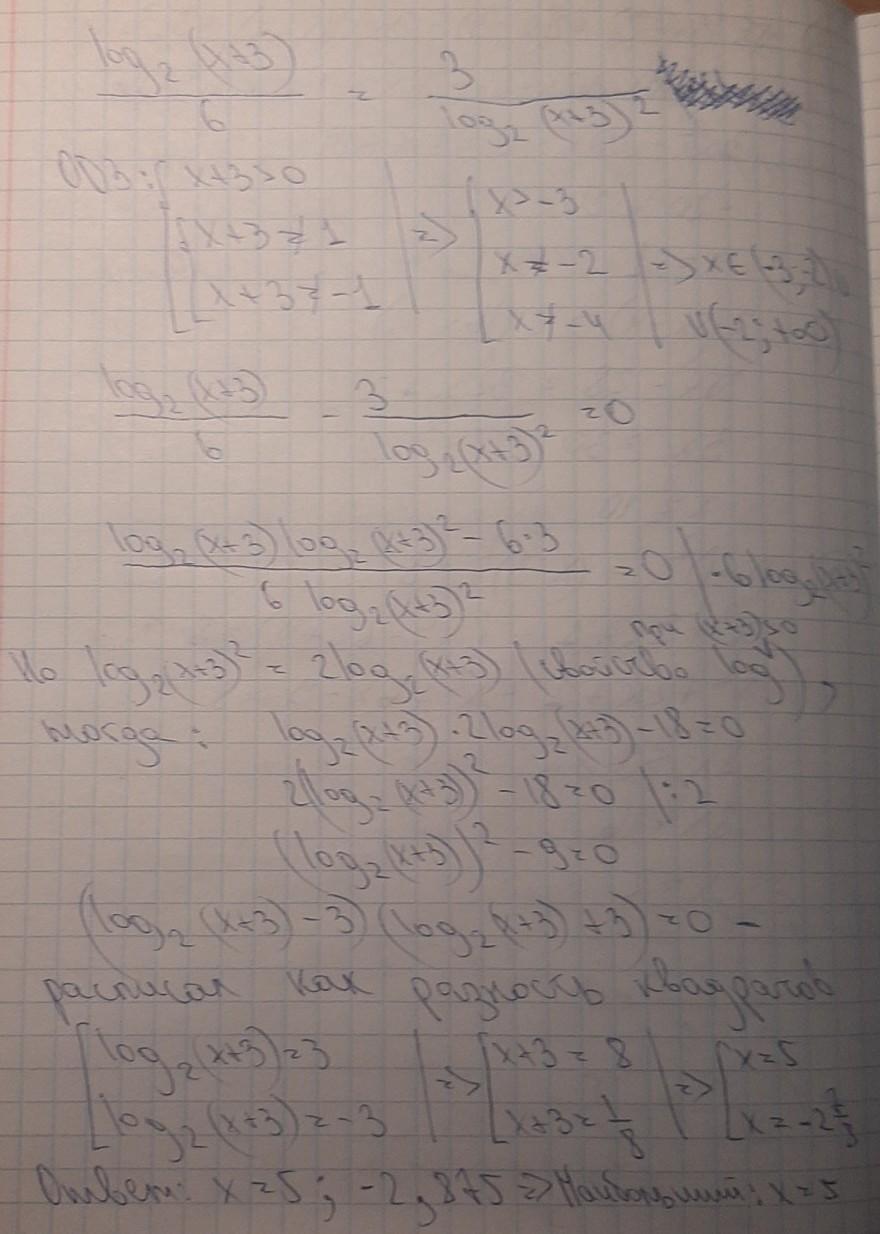 log₂(x+3)/6 = 3/log₂(x+3)²
ОДЗ: { x+3>0
[ x+3≠1
[ x+3≠-1
=> { x>-3
x≠-2
x≠-4
=> x∈(-3;-2)
∪(-2;+∞)
log₂(x+3)/6 - 3/log₂(x+3)² =0
(log₂(x+3)log₂(x+3)² - 6·3)/(6 log₂(x+3)²) =0 |·6log₂(x+3)²
при (x+3)>0
Но log₂(x+3)² = 2log₂(x+3) (свойство log),
тогда: log₂(x+3)·2log₂(x+3)-18=0
2(log₂(x+3))² -18=0 |:2
(log₂(x+3))² - 9=0
(log₂(x+3)-3)(log₂(x+3)+3)=0 -
расписал как разность квадратов
[ log₂(x+3)=3
[ log₂(x+3)=-3
=> [ x+3=8
[ x+3=1/8
=> [ x=5
[ x=-2
Ответ: x=5; -2,875 => Наибольший: x=5